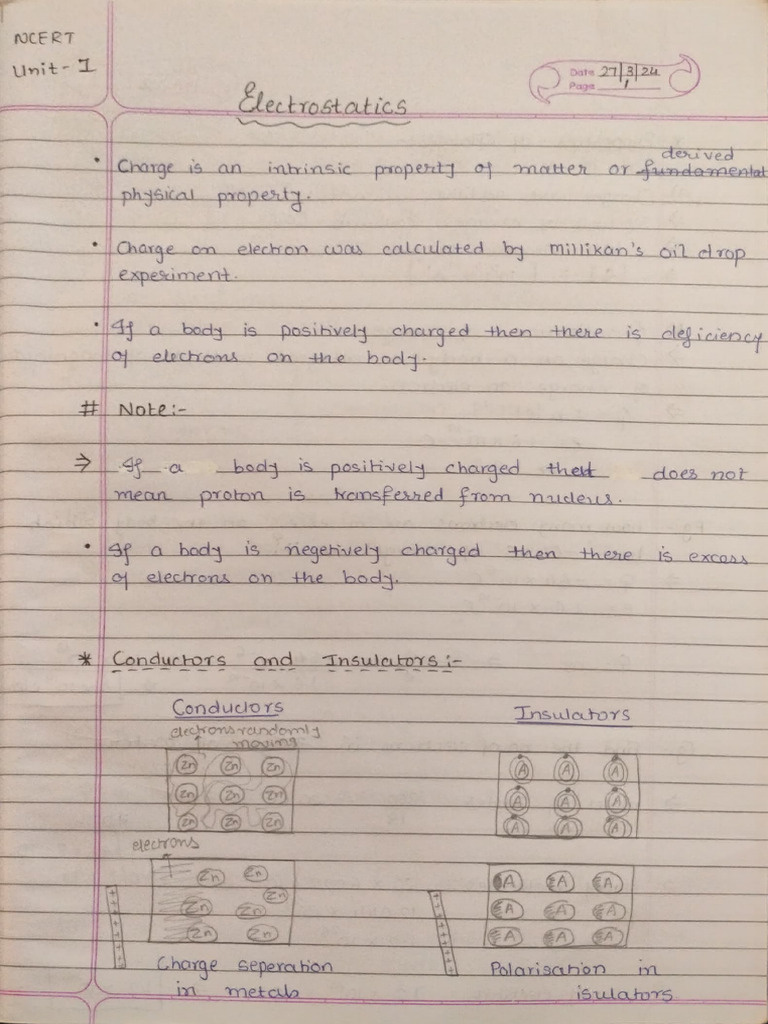 NCERT
Unit - I
Date 27/3/24
Page 1
Electrostatics
• Charge is an intrinsic property of matter or derived fundamental
physical property.
• Charge on electron was calculated by millikan's oil drop
experiment.
• If a body is positively charged then there is deficiency
of electrons on the body.
# Note:-
⇒ If a body is positively charged that does not
mean proton is transferred from nucleus.
• If a body is negetively charged then there is excess
of electrons on the body.
* Conductors and Insulators:-
Conductors Insulators
electrons randomly
moving
Zn Zn Zn A A A
Zn Zn Zn A A A
Zn Zn Zn A A A
electrons
Zn Zn A A A
Zn Zn Zn A A A
Zn Zn A A A
Charge seperation Polarisation in
in metals isulators